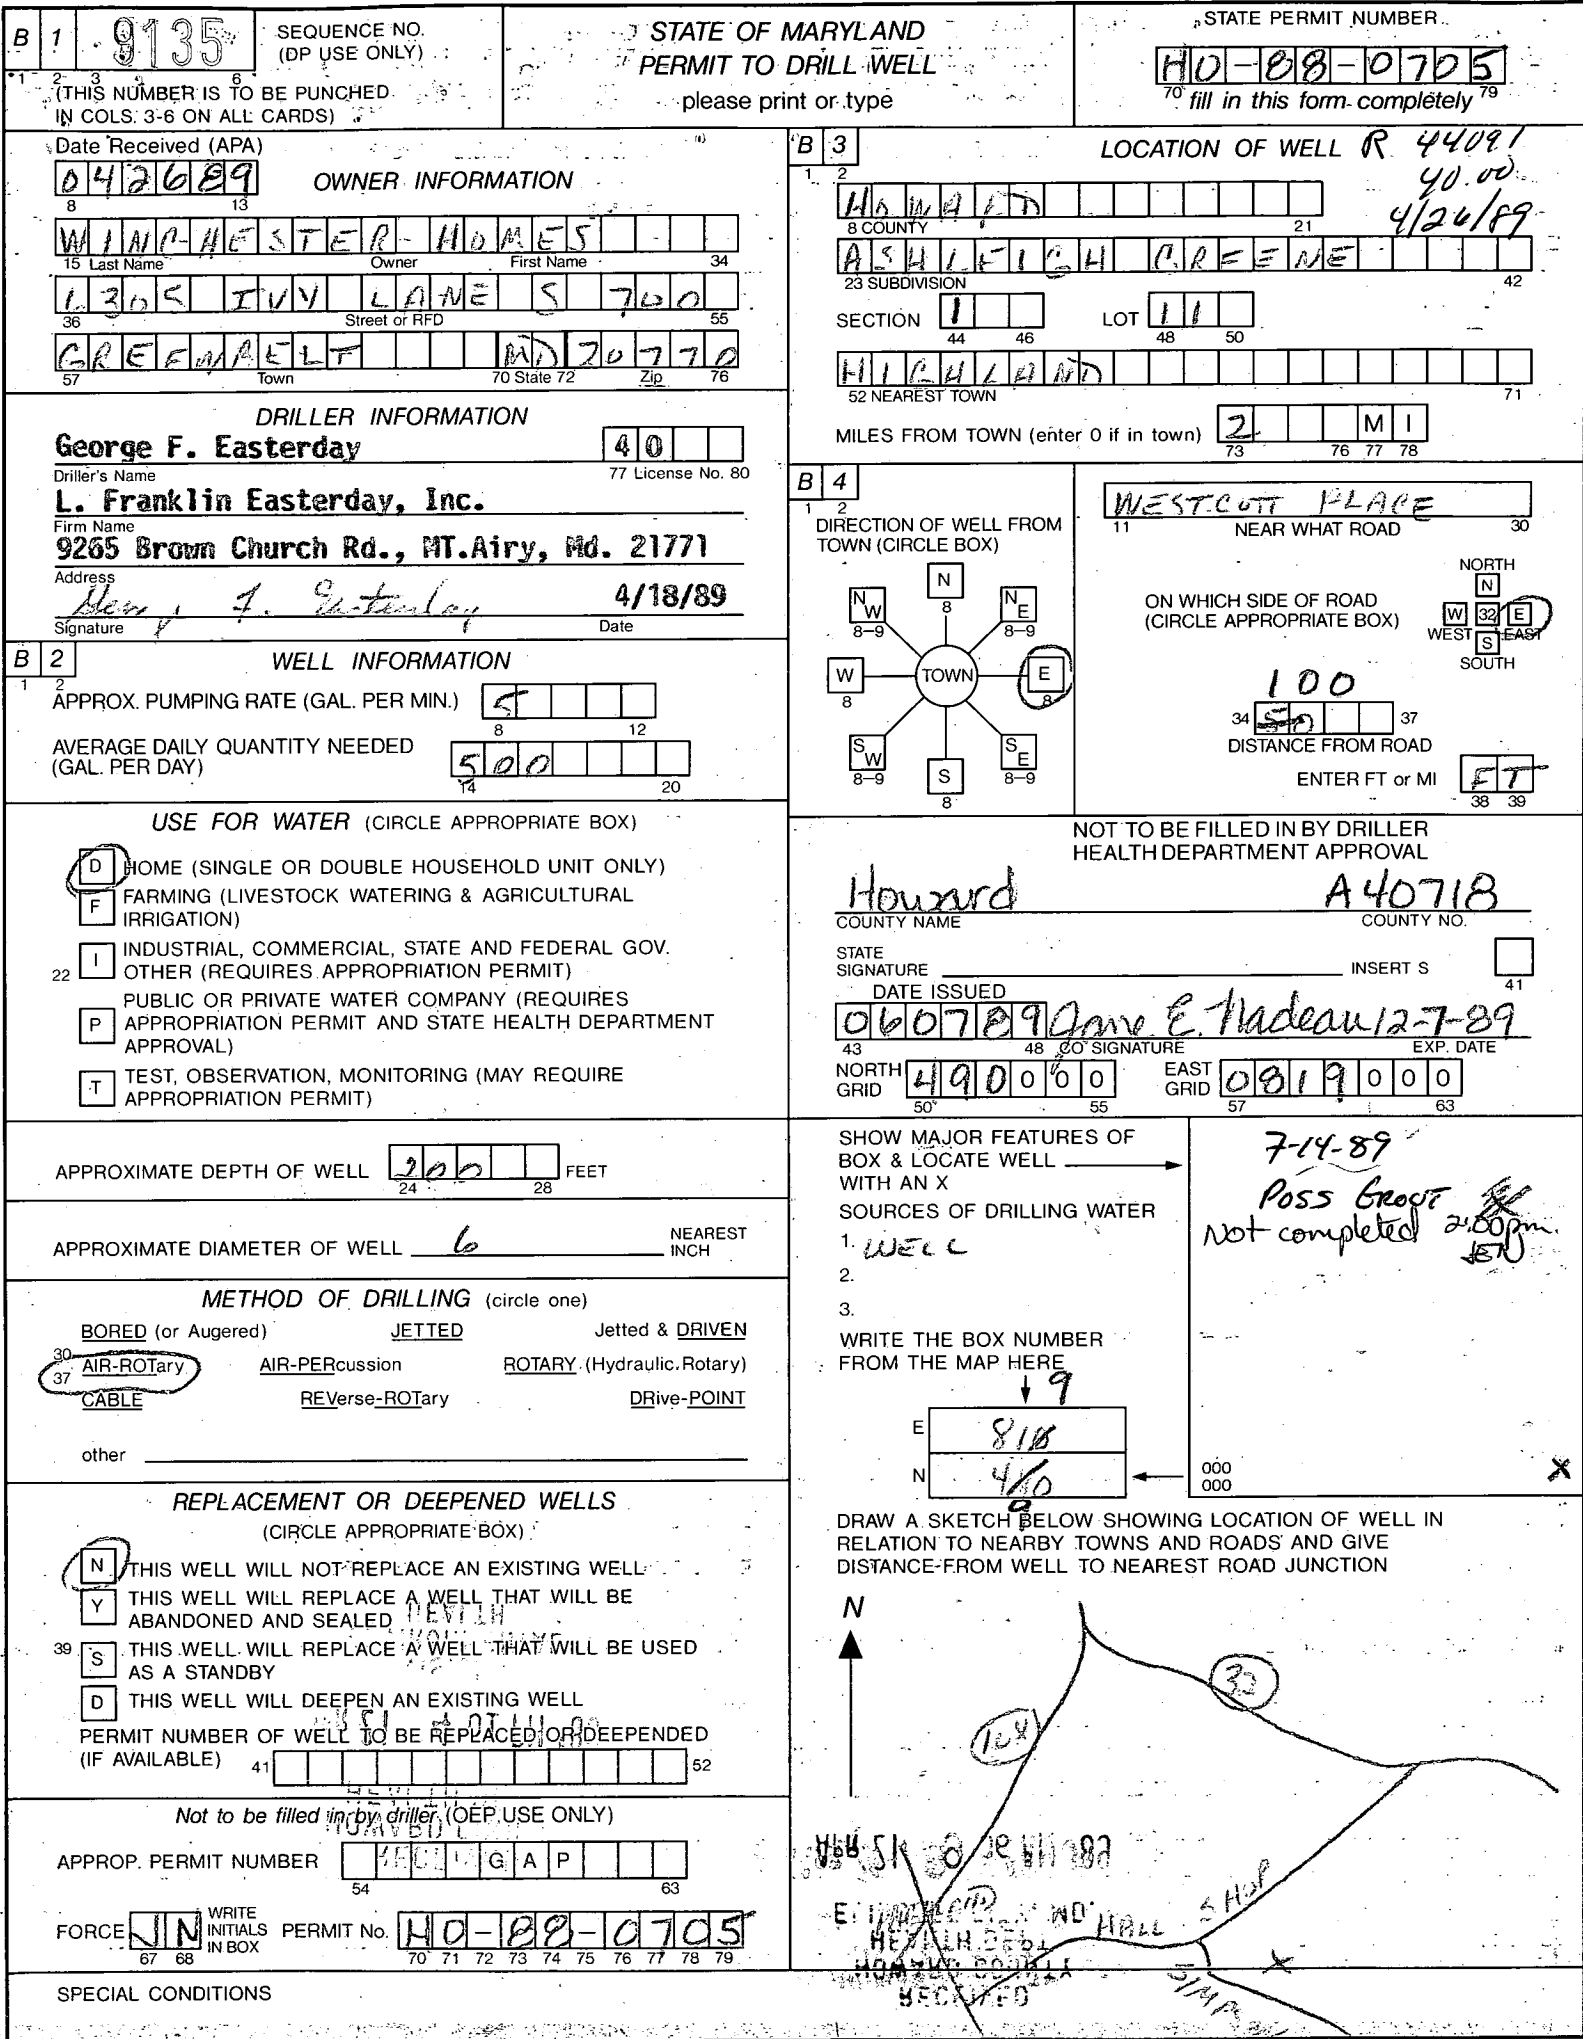 B 1 9135 SEQUENCE NO. (DP USE ONLY)
1 2 3 6
(THIS NUMBER IS TO BE PUNCHED
IN COLS. 3-6 ON ALL CARDS)
STATE OF MARYLAND
PERMIT TO DRILL WELL
please print or type
STATE PERMIT NUMBER
HO-88-0705
70 fill in this form completely 79
Date Received (APA)
042689
8 13
OWNER INFORMATION
WINCHESTER HOMES
15 Last Name Owner First Name 34
6305 IVY LANE S 700
36 Street or RFD 55
GREENBELT MD 20770
57 Town 70 State 72 Zip 76
DRILLER INFORMATION
George F. Easterday 40
Driller's Name 77 License No. 80
L. Franklin Easterday, Inc.
Firm Name
9265 Brown Church Rd., MT.Airy, Md. 21771
Address
4/18/89
Signature Date
B 2 WELL INFORMATION
1 2
APPROX. PUMPING RATE (GAL. PER MIN.) 5
8 12
AVERAGE DAILY QUANTITY NEEDED
(GAL. PER DAY) 500
14 20
USE FOR WATER (CIRCLE APPROPRIATE BOX)
D HOME (SINGLE OR DOUBLE HOUSEHOLD UNIT ONLY)
F FARMING (LIVESTOCK WATERING & AGRICULTURAL
IRRIGATION)
22 I INDUSTRIAL, COMMERCIAL, STATE AND FEDERAL GOV.
OTHER (REQUIRES APPROPRIATION PERMIT)
P PUBLIC OR PRIVATE WATER COMPANY (REQUIRES
APPROPRIATION PERMIT AND STATE HEALTH DEPARTMENT
APPROVAL)
T TEST, OBSERVATION, MONITORING (MAY REQUIRE
APPROPRIATION PERMIT)
APPROXIMATE DEPTH OF WELL 200 FEET
24 28
APPROXIMATE DIAMETER OF WELL 6 NEAREST INCH
METHOD OF DRILLING (circle one)
BORED (or Augered) JETTED Jetted & DRIVEN
30 AIR-ROTary AIR-PERcussion ROTARY (Hydraulic Rotary)
37 CABLE REVerse-ROTary DRive-POINT
other
REPLACEMENT OR DEEPENED WELLS
(CIRCLE APPROPRIATE BOX)
N THIS WELL WILL NOT REPLACE AN EXISTING WELL
Y THIS WELL WILL REPLACE A WELL THAT WILL BE
ABANDONED AND SEALED
39 S THIS WELL WILL REPLACE A WELL THAT WILL BE USED
AS A STANDBY
D THIS WELL WILL DEEPEN AN EXISTING WELL
PERMIT NUMBER OF WELL TO BE REPLACED OR DEEPENED
(IF AVAILABLE) 41 52
Not to be filled in by driller (OEP USE ONLY)
APPROP. PERMIT NUMBER G A P
54 63
FORCE JN WRITE INITIALS IN BOX PERMIT No. HO-88-0705
67 68 70 71 72 73 74 75 76 77 78 79
SPECIAL CONDITIONS
B 3 LOCATION OF WELL R 44091
1 2 40.00
HOWARD 4/26/89
8 COUNTY 21
ASHLEIGH GREENE
23 SUBDIVISION 42
SECTION 1 LOT 11
44 46 48 50
HIGHLAND
52 NEAREST TOWN 71
MILES FROM TOWN (enter 0 if in town) 2 M I
73 76 77 78
B 4
1 2
DIRECTION OF WELL FROM
TOWN (CIRCLE BOX)
N 8
NW 8-9 NE 8-9
W 8 TOWN E 8
SW 8-9 SE 8-9
S 8
WESTCOTT PLACE
11 NEAR WHAT ROAD 30
ON WHICH SIDE OF ROAD
(CIRCLE APPROPRIATE BOX)
NORTH
N
W 32 E
WEST S EAST
SOUTH
100
34 50 37
DISTANCE FROM ROAD
ENTER FT or MI FT
38 39
NOT TO BE FILLED IN BY DRILLER
HEALTH DEPARTMENT APPROVAL
Howard A40718
COUNTY NAME COUNTY NO.
STATE
SIGNATURE INSERT S
41
DATE ISSUED
060789 Jane E. Nadeau 12-7-89
43 48 CO SIGNATURE EXP. DATE
NORTH GRID 490000 EAST GRID 0819000
50 55 57 63
SHOW MAJOR FEATURES OF
BOX & LOCATE WELL
WITH AN X
SOURCES OF DRILLING WATER
1. WELL
2.
3.
WRITE THE BOX NUMBER
FROM THE MAP HERE
9
E 818
N 4
7-14-89
Poss Grout
Not completed 2:00pm.
JEN
000
000
X
DRAW A SKETCH BELOW SHOWING LOCATION OF WELL IN
RELATION TO NEARBY TOWNS AND ROADS AND GIVE
DISTANCE FROM WELL TO NEAREST ROAD JUNCTION
N
32
108
HALL SHOP
X
APR 21 8 36 AM '89
HEALTH DEPT
HOWARD COUNTY
RECEIVED